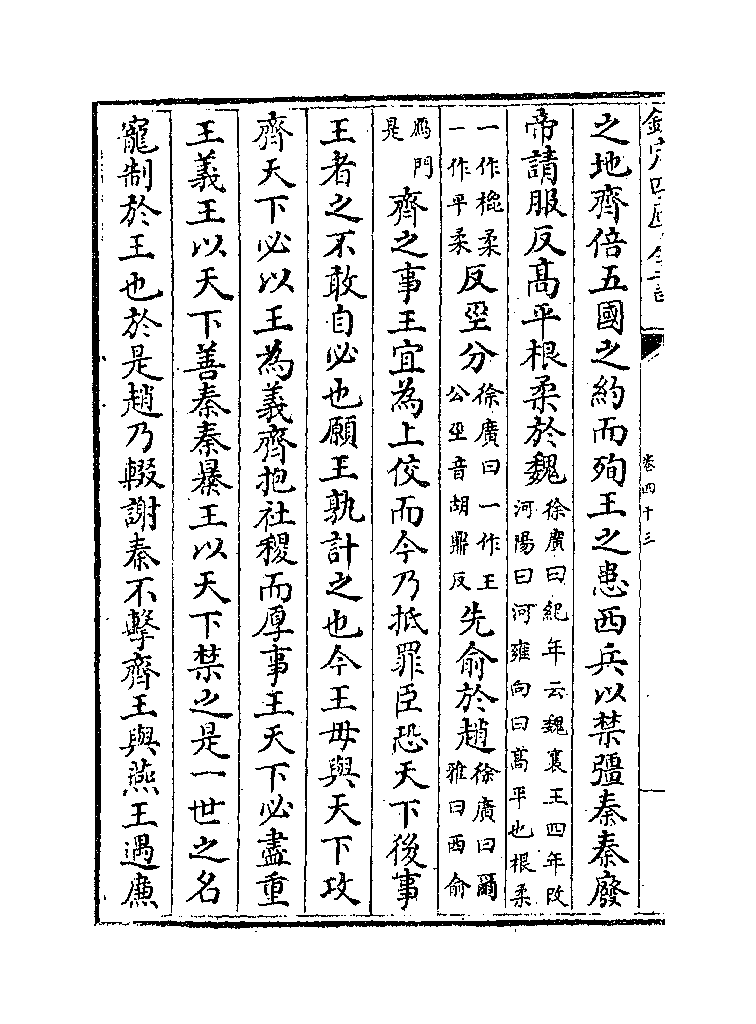 欽定四庫全書
卷四十三
之地齊倍五國之約而殉王之患西兵以禁彊秦秦廢
帝請服反髙平根柔於魏徐廣曰紀年云魏襄王四年改河陽曰河雍向曰髙平也根柔
一作棿柔一作平柔反坙分徐廣曰一作王公坙音胡鼎反先俞於趙徐廣曰爾雅曰西俞
鴈門是齊之事王宜為上佼而今乃抵罪臣恐天下後事
王者之不敢自必也願王孰計之也今王毋與天下攻
齊天下必以王為義齊抱社稷而厚事王天下必盡重
王義王以天下善秦秦暴王以天下禁之是一世之名
寵制於王也於是趙乃輟謝秦不擊齊王與燕王遇亷